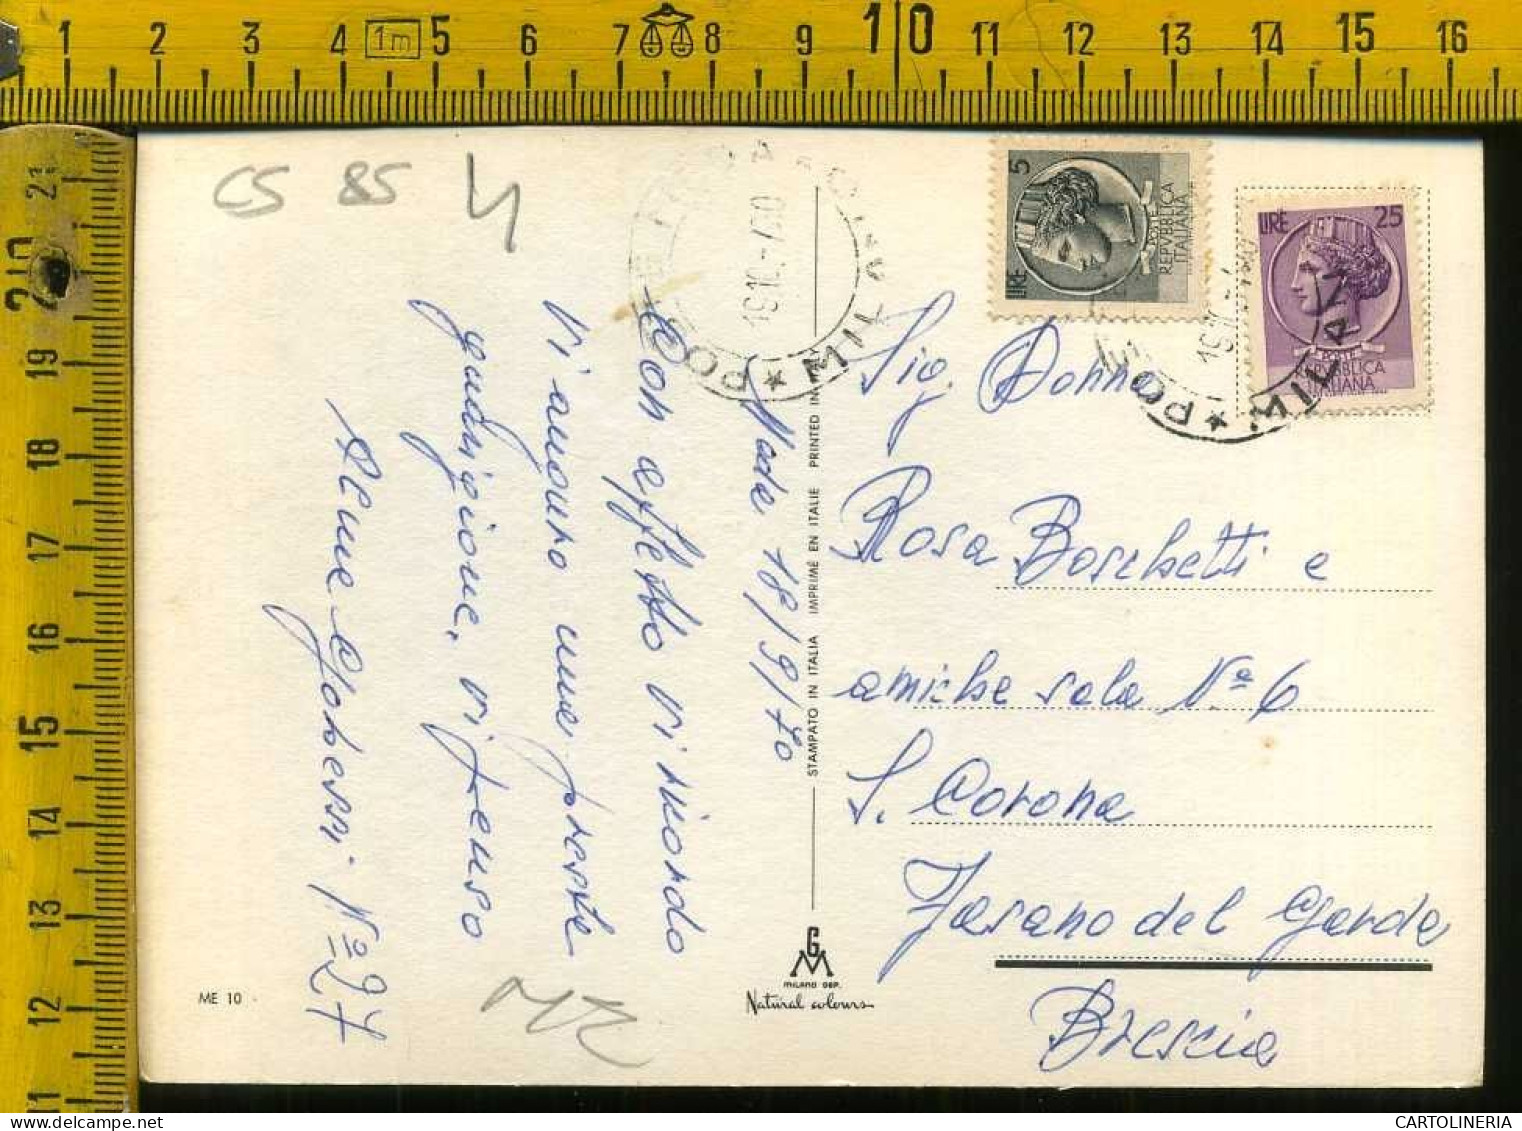 1 2 3 4 1m 5 6 7 8 9 10 11 12 13 14 15 16
21
20
19
18
17
16
15
14
13
12
11
CS 85
19.10.-
MILAN
LIRE 5
POSTE
REPVBBLICA
ITALIANA
LIRE 25
POSTE
REPVBBLICA
ITALIANA
18/9/70
Con affetto vi ricordo
Vi auguro una presta
guarigione, vi penso
N° 27
ME 10
STAMPATO IN ITALIA IMPRIMÉ EN ITALIE PRINTED IN
GM
MILANO DEP.
Natural colours
Sig. Donna
Rosa Boschetti e
amiche sala N° 6
S. Corona
Fasano del Garda
Brescia
CARTOLINERIA